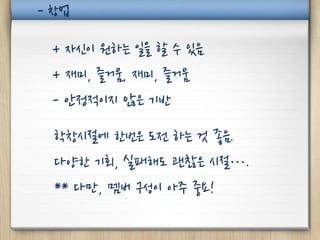 - 창법
+ 자신이 원하는 일을 할 수 있음
+ 재미, 즐거움, 재미, 즐거움
- 안정적이지 않은 기반
학창시절에 한번은 도전 하는 것 좋음.
다양한 기회, 실패해도 괜찮은 시절….
** 다만, 멤버 구성이 아주 중요!